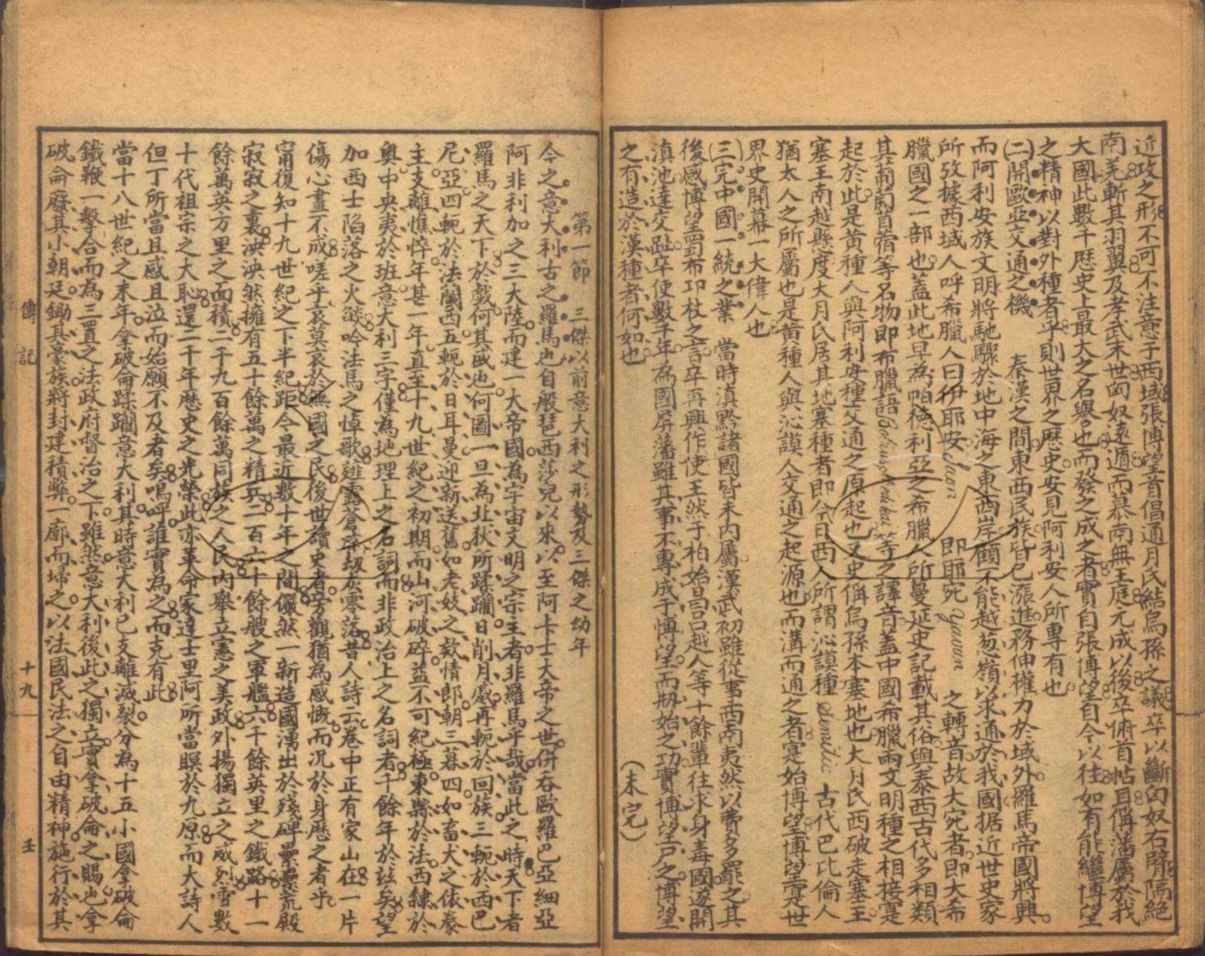 近政之形不可不注意于西域張博望首倡通月氏結烏孫之議卒以斷匈奴右臂隔絕
南羌斬其羽翼及孝武末世匈奴遠遁而幕南無王庭元成以後卒俯首帖耳偁藩屬於我
大國此數千歷史上最大之名譽也而發之成之者實自張博望自今以往如有能繼博望
之精神以對外種者乎則世界之歷史安見阿利安人所專有也
(二)開歐亞交通之機 秦漢之間東西民族皆已漲進務伸權力於域外羅馬帝國將興
而阿利安族文明將馳驟於地中海之東西岸顧不能越葱嶺以求通於我國据近世史家
所攷據西域人呼希臘人曰伊耶安 Iaon 即耶宛 Yavan 之轉音故大宛者即大希
臘國之一部也蓋此地早為帕德利亞之希臘人所蔓延史記載其俗與泰西古代多相類
其葡萄苜蓿等名物即希臘語等之譯音蓋中國希臘兩文明種之相接寔
起於此是黃種人與阿利安種交通之原起也又史偁烏孫本塞地也大月氏西破走塞王
塞王南越懸度大月氏居其地塞種者即今日西人所謂沁謨種 Semitic 古代巴比倫人
猶太人之所屬也是黃種人與沁謨人交通之起源也而溝而通之者寔始博望博望寔世
界史開幕一大偉人也
(三)完中國一統之業 當時滇黔諸國皆未內屬漢武初雖從事西南夷然以費多罷之其
後感博望蜀布邛杖之言卒再興作使王然于柏始昌呂越人等十餘輩往求身毒國遂開
滇池達交趾卒使數千年為國屏藩雖其事不專成于博望而刱始之功實博望尸之博望
之有造於漢種者何如也 (未完)
第一節 三傑以前意大利之形勢及三傑之幼年
今之意大利古之羅馬也自般琶西莎兒以來以至阿卡士大帝之世併吞歐羅巴亞細亞
阿非利加之三大陸而建一大帝國為宇宙文明之宗主者非羅馬乎哉當此之時天下者
羅馬之天下於戲何其盛也何圖一旦為北狄所蹂躪日削月蹙再軛於回族三軛於西巴
尼亞四軛於法蘭西五軛於日耳曼迎新送舊如老妓之款情郎朝三暮四如畜犬之依豢
主支離憔悴年甚一年直至十九世紀之初期而山河破碎益不可紀極東縣於法西隸於
奧中央夷於班意大利三字僅為地理上之名詞而非政治上之名詞者千餘年於茲矣望
加西士陷落之火燄吟法馬之悼歌薤露蒼茫刼灰零落昔人詩云卷中正有家山在一片
傷心畫不成嗟乎哀莫哀於無國之民後世讀史者旁觀猶為感慨而況於身歷之者乎
甯復知十九世紀之下半紀距今最近數十年之間儼然一新造國湧出於殘碑壘壘荒殿
寂寂之裏泱泱然擁有五十餘萬之精兵二百六十餘艘之軍艦六千餘英里之鐵路十一
餘萬英方里之面積二千九百餘萬同族之人民內舉立憲之美政外揚獨立之威烈雪數
十代祖宗之大恥還二千年歷史之光榮此亦革命家達士里阿所當瞑於九原而大詩人
但丁所當且感且泣而始願不及者矣嗚呼誰實為之而克有此
當十八世紀之末年拿破侖蹂躪意大利其時意大利已支離滅裂分為十五小國拿破侖
鐵鞭一擊合而為三置之法政府督治之下雖然意大利後此之獨立實拿破侖之賜也拿
破侖廢其小朝廷鋤其豪族將封建積弊一廓而埽之以法國民法之自由精神施行於其
傳記 十九 壬